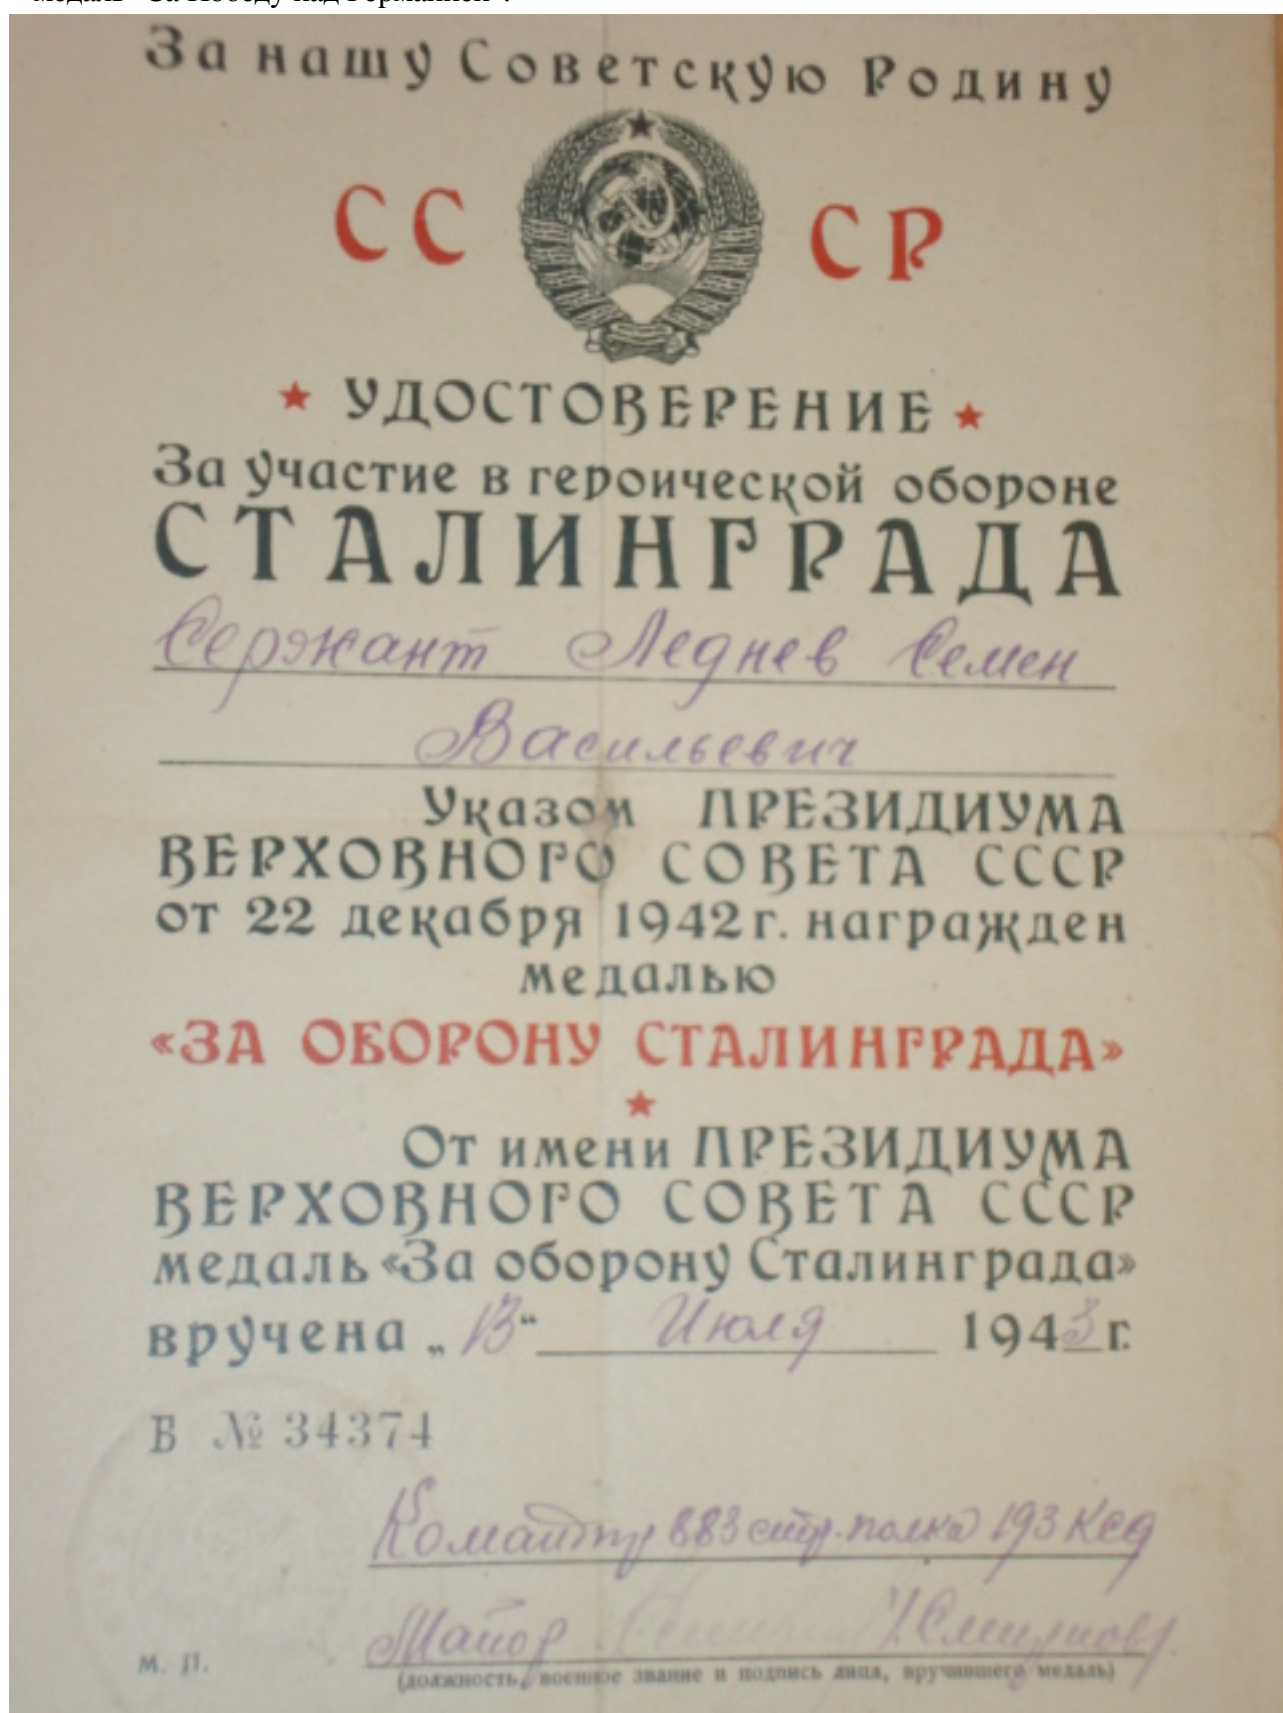 медаль "За Победу над Германией".
За нашу Советскую Родину
СС СР
УДОСТОВЕРЕНИЕ
За участие в героической обороне
СТАЛИНГРАДА
Сержант Леднев Семен
Васильевич
Указом ПРЕЗИДИУМА
ВЕРХОВНОГО СОВЕТА СССР
от 22 декабря 1942 г. награжден
медалью
«ЗА ОБОРОНУ СТАЛИНГРАДА»
От имени ПРЕЗИДИУМА
ВЕРХОВНОГО СОВЕТА СССР
медаль «За оборону Сталинграда»
вручена „13“ Июля 1943 г.
Б № 34374
Командир 883 стр. полка 193 Ксд
Майор /Смирнов/.
М. П.
(должность, военное звание и подпись лица, вручившего медаль)